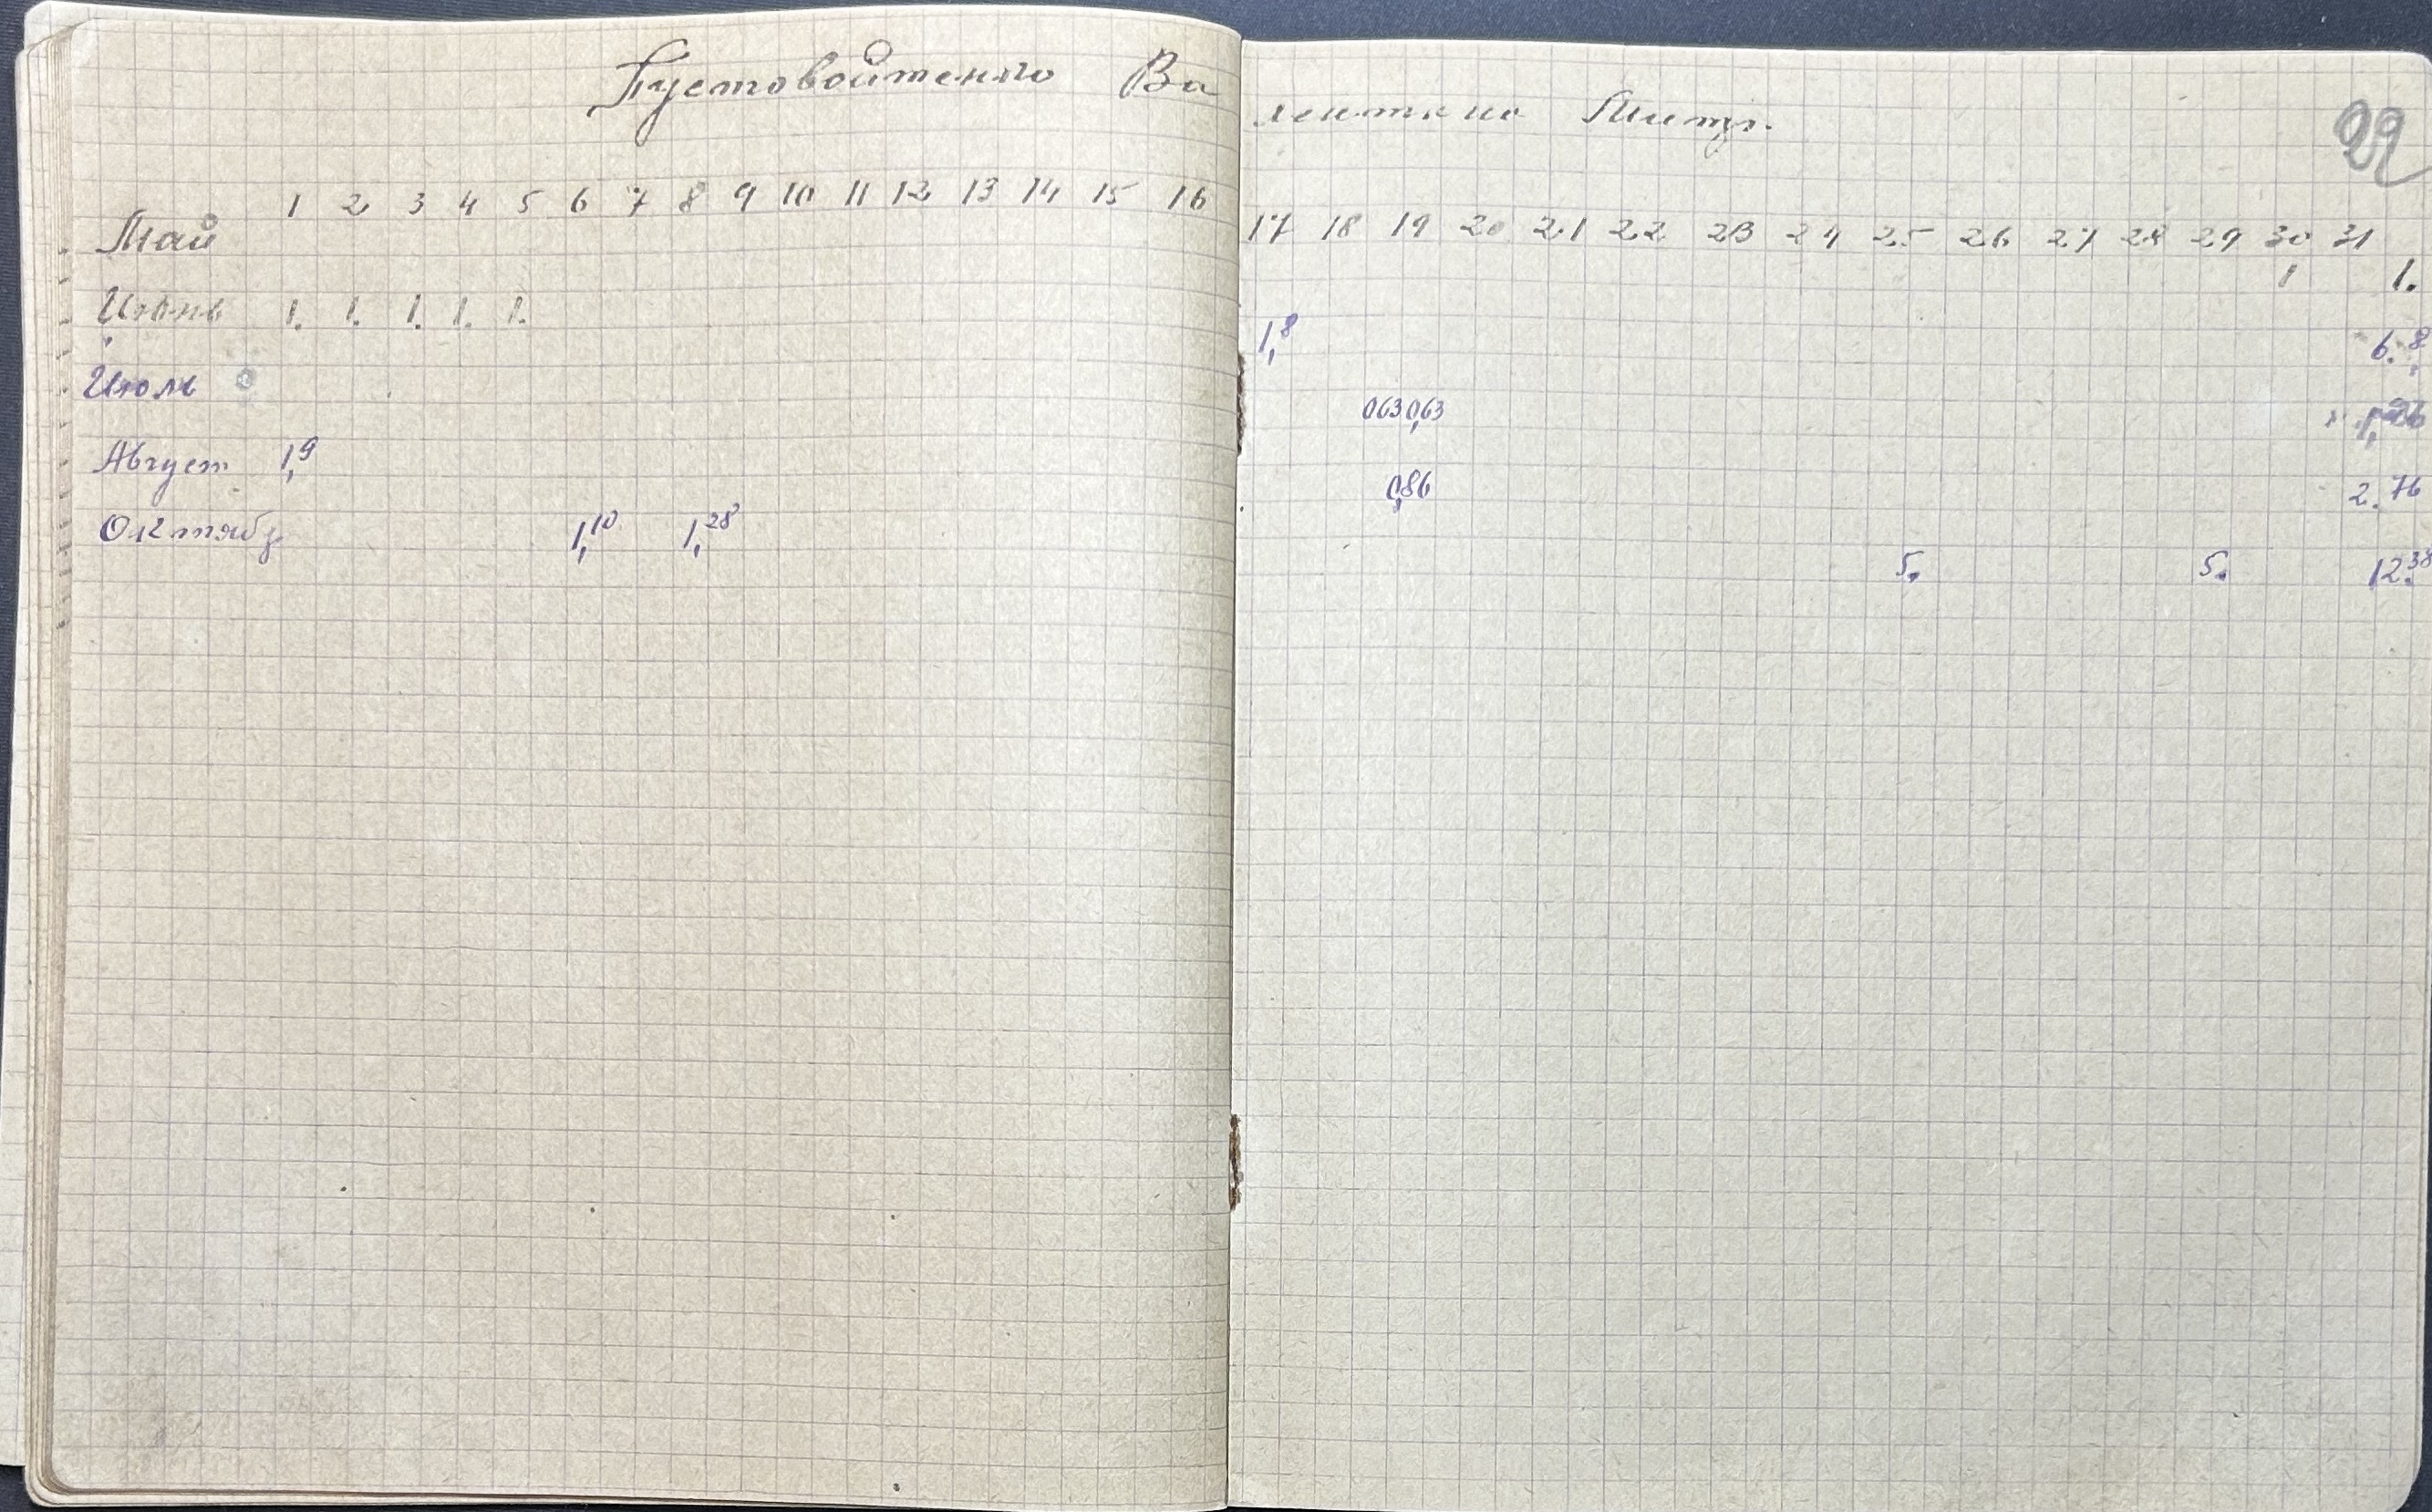 Пустовойтенко Валентина Митр.
29
1 2 3 4 5 6 7 8 9 10 11 12 13 14 15 16 17 18 19 20 21 22 23 24 25 26 27 28 29 30 31
Май 1 1.
Июнь 1. 1. 1. 1. 1. 1,8 6.8
Июль 063 0,63
Август 1,9 0,86 2.76
Октябр 1,10 1,28 5. 5. 12.38